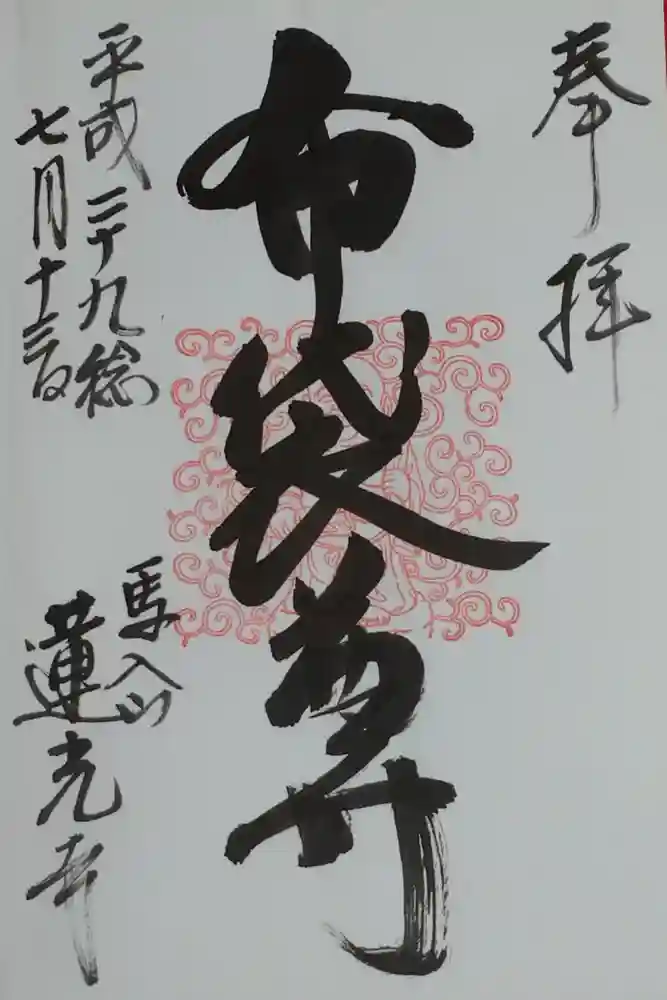 奉拝
布袋尊
平成二十九年
七月十三日
馬入山
蓮光寺